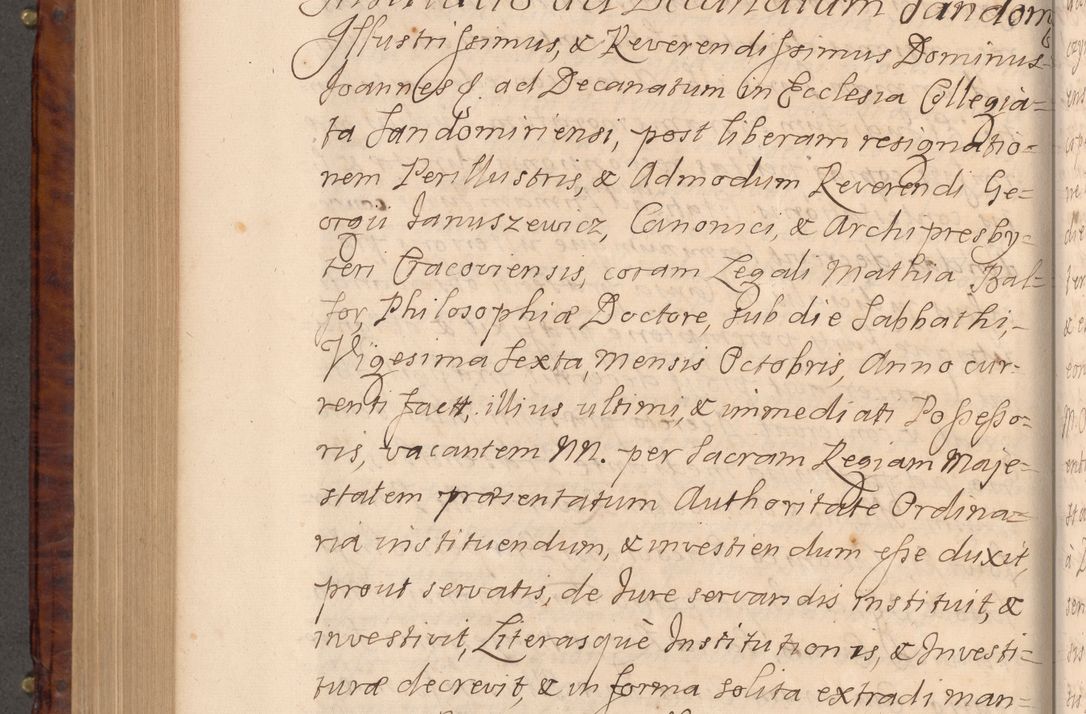 Institutio ad Decanatum Sandom
Jllustrissimus, & Reverendissimus Dominus
Joannes ad Decanatum in Ecclesia Collegia=
ta Sandomiriensi, post liberam resignatio=
nem Perillustris, & Admodum Reverendi Ge=
orgii Januszewicz, Canonici, & Archipresby=
teri Cracoviensis, coram Legali Mathia Bal=
for, Philosophiæ Doctore, sub die Sabbathi,
Vigesima Sexta, Mensis Octobris, Anno cur-
renti fact, illius ultimi, & immediati Possesso=
ris, vacantem NN. per Sacram Regiam Maje=
statem præsentatum Authoritate Ordina=
ria instituendum, & investiendum esse duxit,
prout servatis, de Jure servandis instituit, &
investivit, Literasquè Institutionis, & Investi=
turæ decrevit, & in forma solita extradi man=